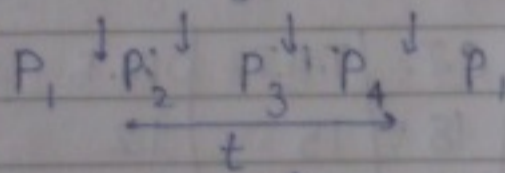 P₁ ↓ P₂ ↓ P₃ ↓ P₄ ↓ P₁
t